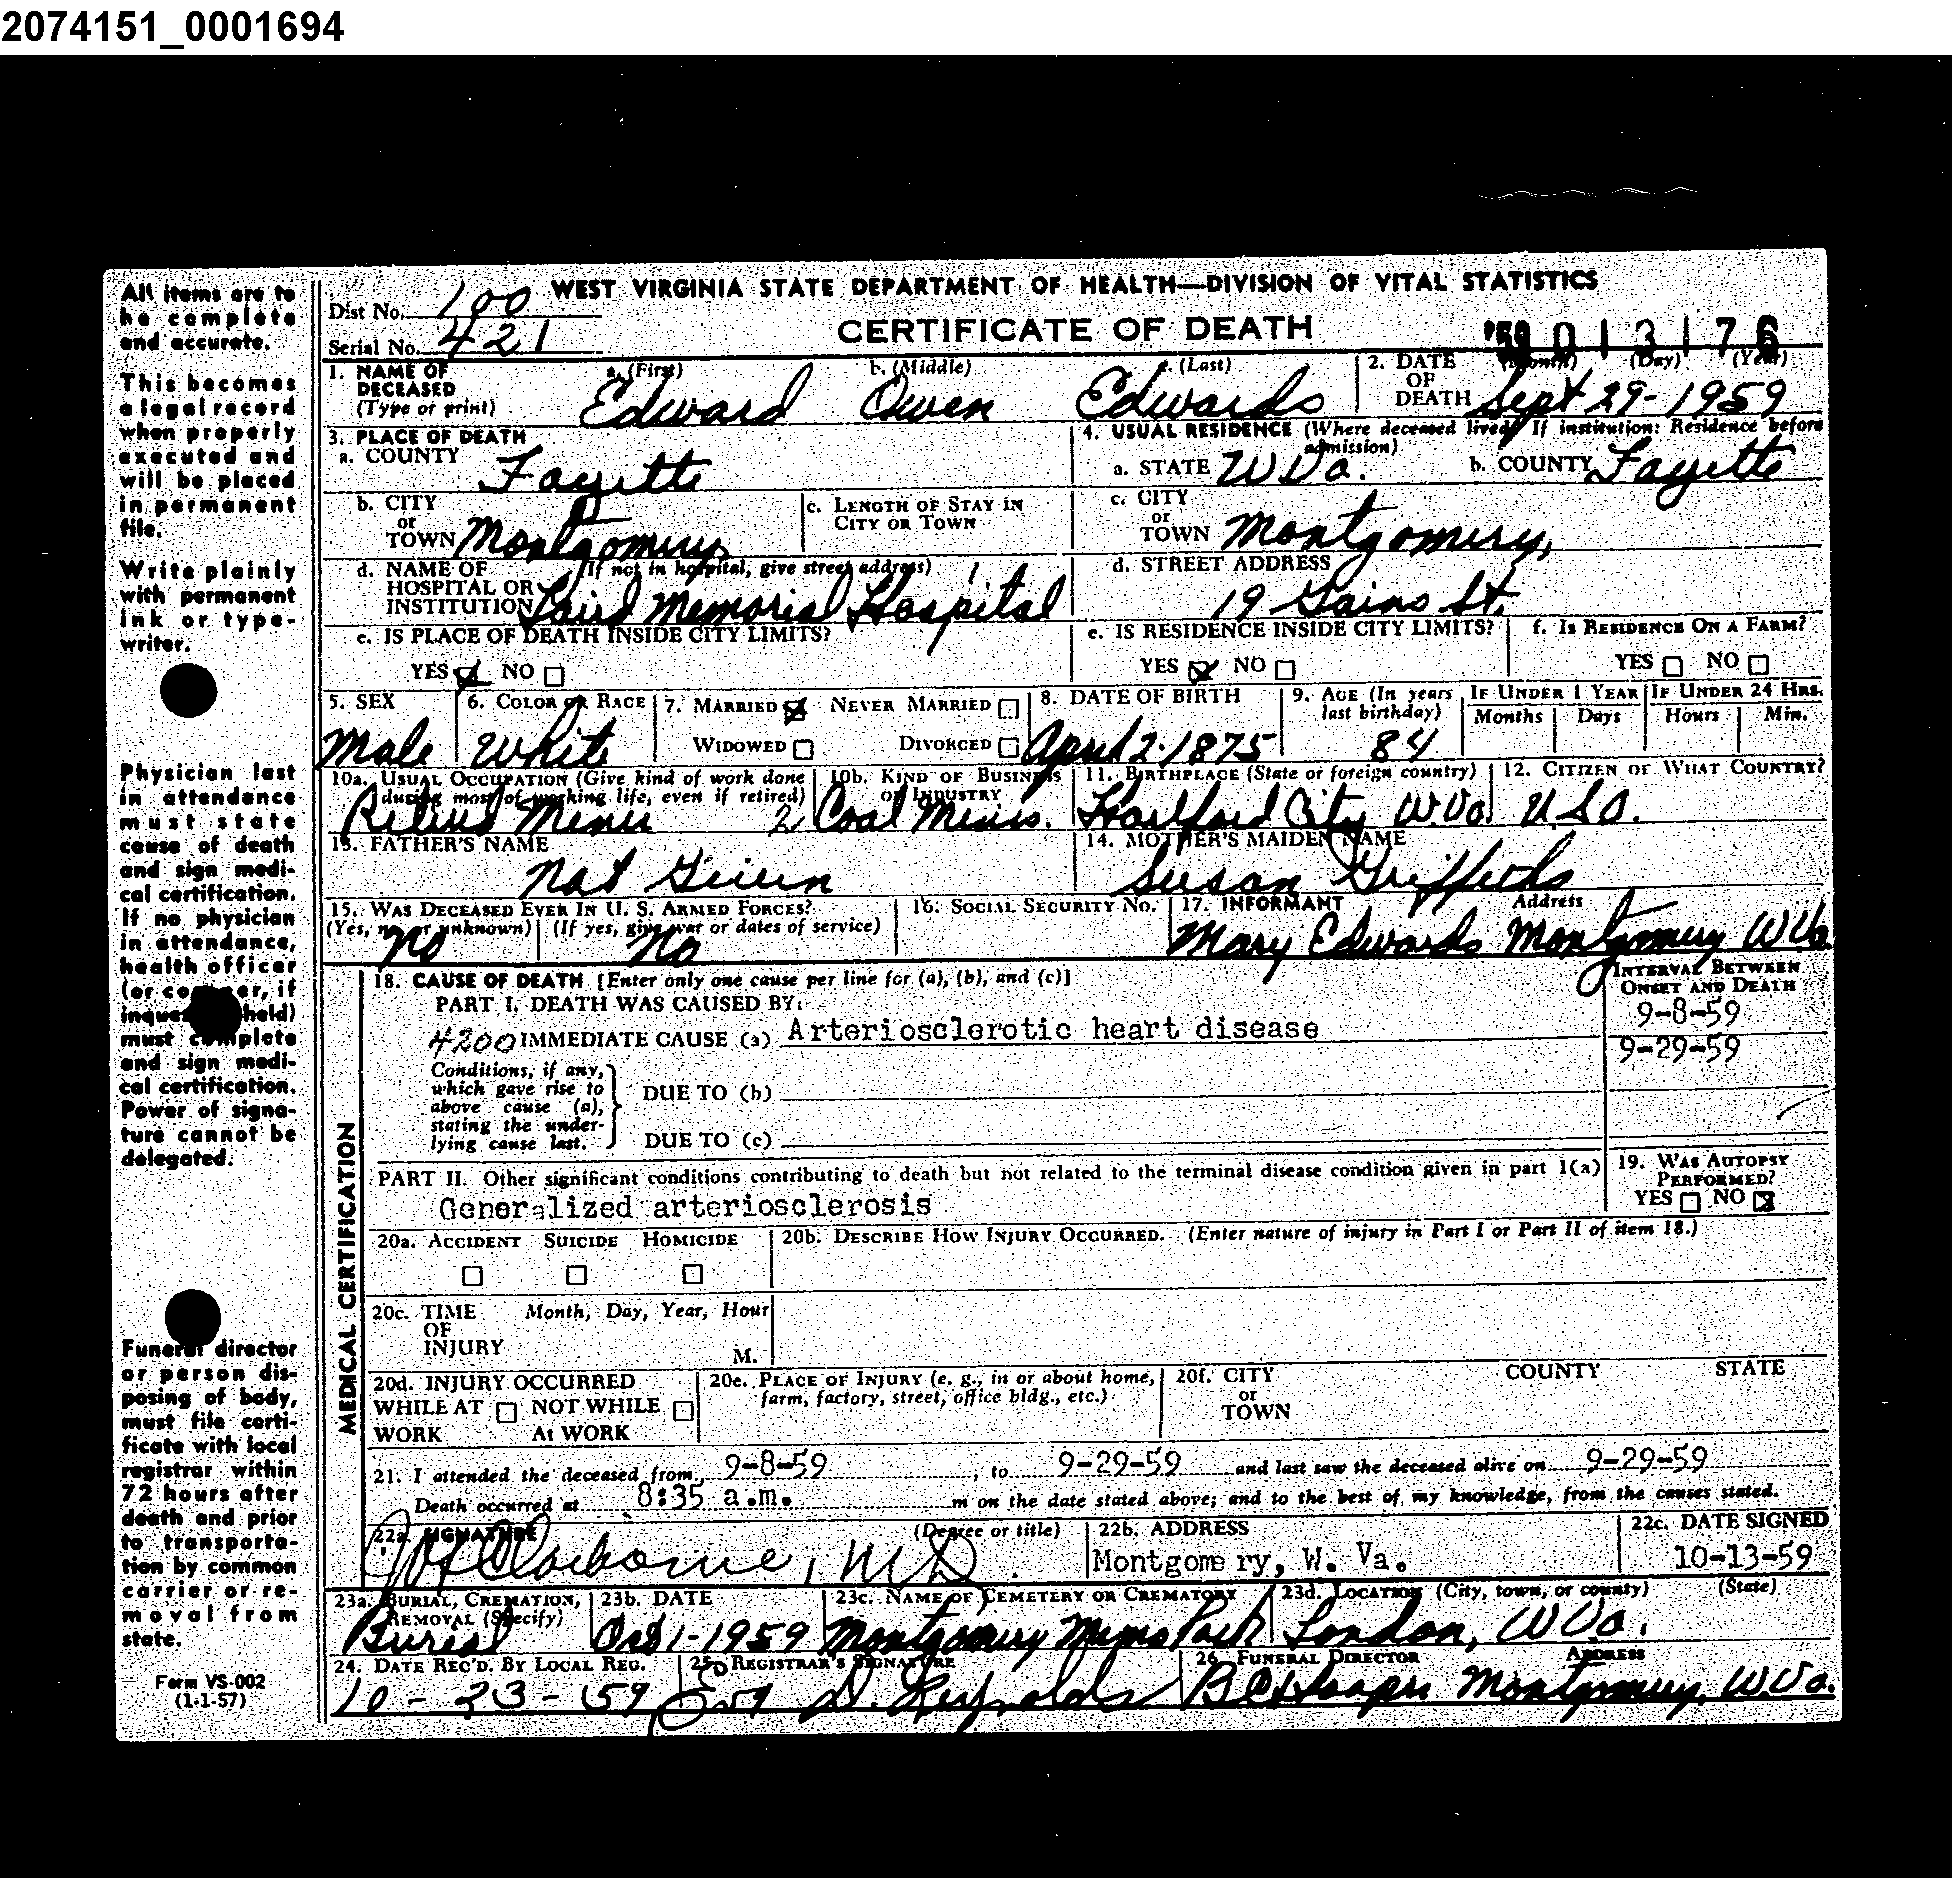 2074151_0001694
All items are to be complete and accurate.
This becomes a legal record when properly executed and will be placed in permanent file.
Write plainly with permanent ink or typewriter.
Physician last in attendance must state cause of death and sign medical certification. If no physician in attendance, health officer (or coroner, if inquest held) must complete and sign medical certification. Power of signature cannot be delegated.
Funeral director or person disposing of body, must file certificate with local registrar within 72 hours after death and prior to transportation by common carrier or removal from state.
Form VS-002
(1-1-57)
WEST VIRGINIA STATE DEPARTMENT OF HEALTH—DIVISION OF VITAL STATISTICS
Dist No. 100
Serial No. 421
CERTIFICATE OF DEATH
'59 013176
1. NAME OF DECEASED (Type or print) a. (First) Edward b. (Middle) Owen c. (Last) Edwards
2. DATE OF DEATH (Month) (Day) (Year) Sept 29-1959
3. PLACE OF DEATH
a. COUNTY Fayette
4. USUAL RESIDENCE (Where deceased lived. If institution: Residence before admission)
a. STATE W Va. b. COUNTY Fayette
b. CITY or TOWN Montgomery,
c. LENGTH OF STAY IN CITY OR TOWN
c. CITY or TOWN Montgomery,
d. NAME OF HOSPITAL OR INSTITUTION (If not in hospital, give street address) Laird Memorial Hospital
d. STREET ADDRESS 19 Gains St.
e. IS PLACE OF DEATH INSIDE CITY LIMITS?
YES NO
e. IS RESIDENCE INSIDE CITY LIMITS?
YES NO
f. IS RESIDENCE ON A FARM?
YES NO
5. SEX Male
6. COLOR OR RACE White
7. MARRIED NEVER MARRIED
WIDOWED DIVORCED
8. DATE OF BIRTH April 2-1875
9. AGE (In years last birthday) 84
IF UNDER 1 YEAR Months Days
IF UNDER 24 HRS. Hours Min.
10a. USUAL OCCUPATION (Give kind of work done during most of working life, even if retired) Retired Miner 2
10b. KIND OF BUSINESS OR INDUSTRY Coal Mines.
11. BIRTHPLACE (State or foreign country) Hartford City W.Va.
12. CITIZEN OF WHAT COUNTRY? U.S.A.
13. FATHER'S NAME Nat
14. MOTHER'S MAIDEN NAME Susan Griffeds
15. WAS DECEASED EVER IN U. S. ARMED FORCES?
(Yes, no, or unknown) No (If yes, give war or dates of service) No
16. SOCIAL SECURITY NO.
17. INFORMANT Address
Mary Edwards Montgomery W Va.
MEDICAL CERTIFICATION
18. CAUSE OF DEATH [Enter only one cause per line for (a), (b), and (c)]
PART I. DEATH WAS CAUSED BY:
INTERVAL BETWEEN ONSET AND DEATH
4200 IMMEDIATE CAUSE (a) Arteriosclerotic heart disease
9-8-59
9-29-59
Conditions, if any, which gave rise to above cause (a), stating the underlying cause last.
DUE TO (b)
DUE TO (c)
PART II. Other significant conditions contributing to death but not related to the terminal disease condition given in part 1(a)
Generalized arteriosclerosis
19. WAS AUTOPSY PERFORMED?
YES NO
20a. ACCIDENT SUICIDE HOMICIDE
20b. DESCRIBE HOW INJURY OCCURRED. (Enter nature of injury in Part I or Part II of item 18.)
20c. TIME OF INJURY Month, Day, Year, Hour
M.
20d. INJURY OCCURRED
WHILE AT WORK NOT WHILE At WORK
20e. PLACE OF INJURY (e. g., in or about home, farm, factory, street, office bldg., etc.)
20f. CITY or TOWN COUNTY STATE
21. I attended the deceased from 9-8-59, to 9-29-59 and last saw the deceased alive on 9-29-59
Death occurred at 8:35 a.m. m on the date stated above; and to the best of my knowledge, from the causes stated.
22a. SIGNATURE (Degree or title) Claiborne, MD.
22b. ADDRESS Montgomery, W. Va.
22c. DATE SIGNED 10-13-59
23a. BURIAL, CREMATION, REMOVAL (Specify) Burial
23b. DATE Oct 1-1959
23c. NAME OF CEMETERY OR CREMATORY Montgomery Mems Park
23d. LOCATION (City, town, or county) (State) London, W Va.
24. DATE REC'D. BY LOCAL REG. 10-23-59
25. REGISTRAR'S SIGNATURE D. Reynolds
26. FUNERAL DIRECTOR ADDRESS
Montgomery, W.Va.